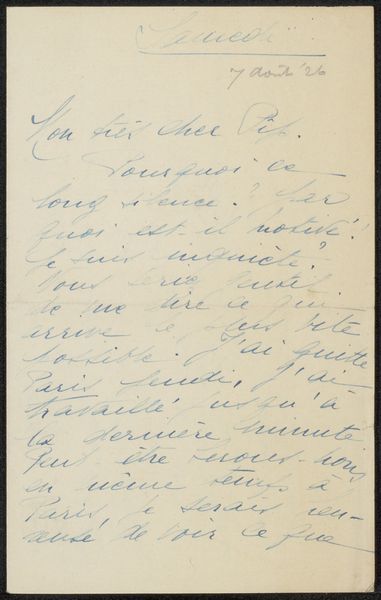 Samedi
7 août '26
Mon très cher Pip.
Pourquoi ce
long silence? Par
quoi est-il motivé?
Je suis inquiète.
Vous
de me dire ce qui
arrive le plus vite
possible. J'ai quitté
Paris Jeudi, j'ai
travaillé jusqu'à
la dernière minute
Peut-être serons-nous
en même temps à
Paris. Je serais heu-
reuse de voir ce que